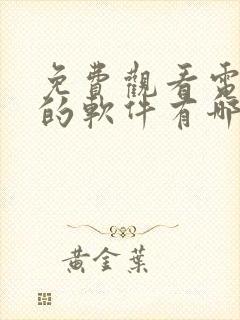 免費觀看電
的軟件有哪
黃金葉